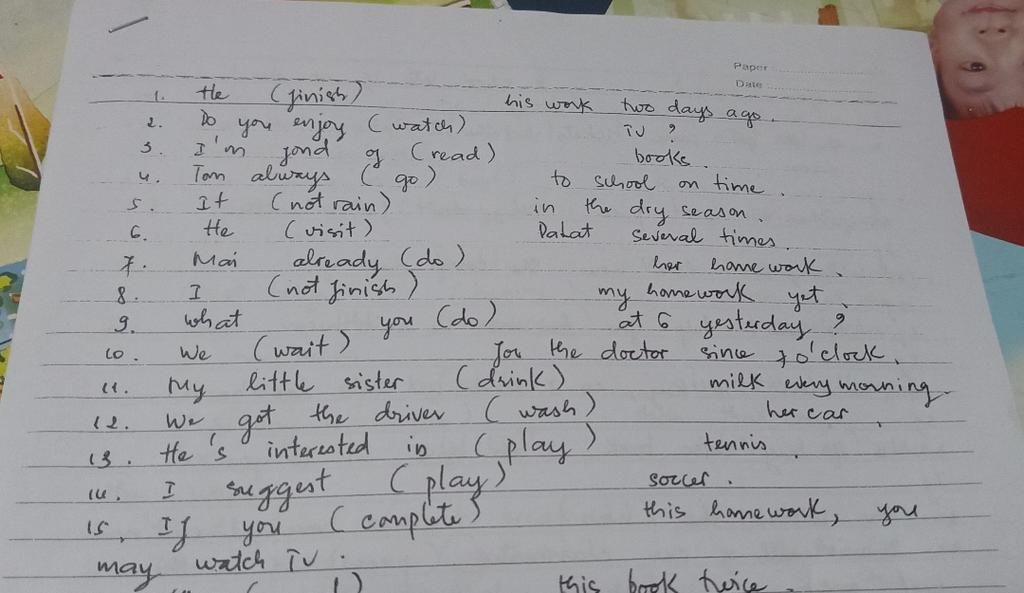 Paper
Date
1. He (finish) his work two days ago.
2. Do you enjoy (watch) TV ?
3. I'm fond of (read) books.
4. Tom always (go) to school on time.
5. It (not rain) in the dry season.
6. He (visit) DaLat several times.
7. Mai already (do) her homework.
8. I (not finish) my homework yet.
9. What you (do) at 6 yesterday ?
10. We (wait) for the doctor since 7 o'clock.
11. My little sister (drink) milk every morning.
12. We got the driver (wash) her car.
13. He's interested in (play) tennis.
14. I suggest (play) soccer.
15. If you (complete) this homework, you
may watch TV.
this book twice.